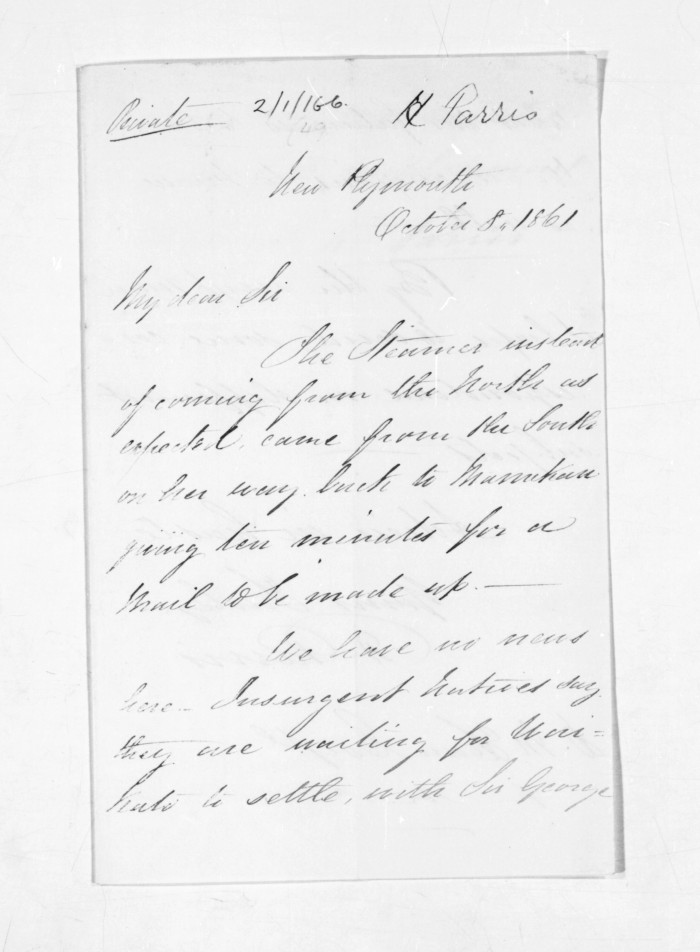 Private 2/1/166. H Parris
New Plymouth
October 8, 1861
My dear Sir
The Steamer instead
of coming from the North as
expected, came from the South
on her way back to Manukau
giving ten minutes for a
Mail to be made up. —
We have no news
here – Insurgent Natives say
they are waiting for Wai=
kato to settle, with Sir George